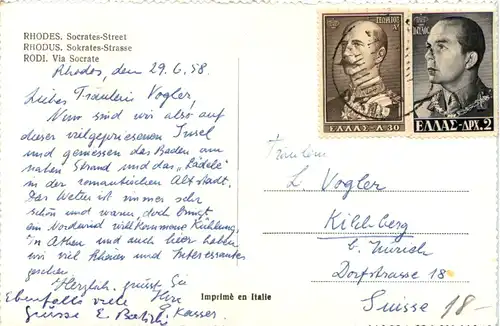 RHODES. Socrates-Street
RHODUS. Sokrates-Strasse
RODI. Via Socrate
Rhodos, den 29.6.58.
Liebes Fräulein Vogler,
Nun sind wir also auf
dieser vielgepriesenen Insel
und geniessen das Baden am
nahen Strand und das „Lädele"
in der romantischen Altstadt.
Das Wetter ist immer sehr
schön und warm, doch bringt
ein Nordwind willkommene Kühlung.
In Athen und auch hier haben
wir viel Schönes und Interessantes
gesehen.
Herzlich grüsst Sie
Ebenfalls viele Ihr
Grüsse E. Kasser
Imprimé en Italie
ΓΕΩΡΓΙΟΣ Α!
ΕΛΛΑΣ-Λ.30
ΠΑΥΛΟΣ
ΕΛΛΑΣ-ΔΡΧ.2
Fräulein
L. Vogler
Kilchberg
b. Zürich
Dorfstrasse 18
Suisse 18-